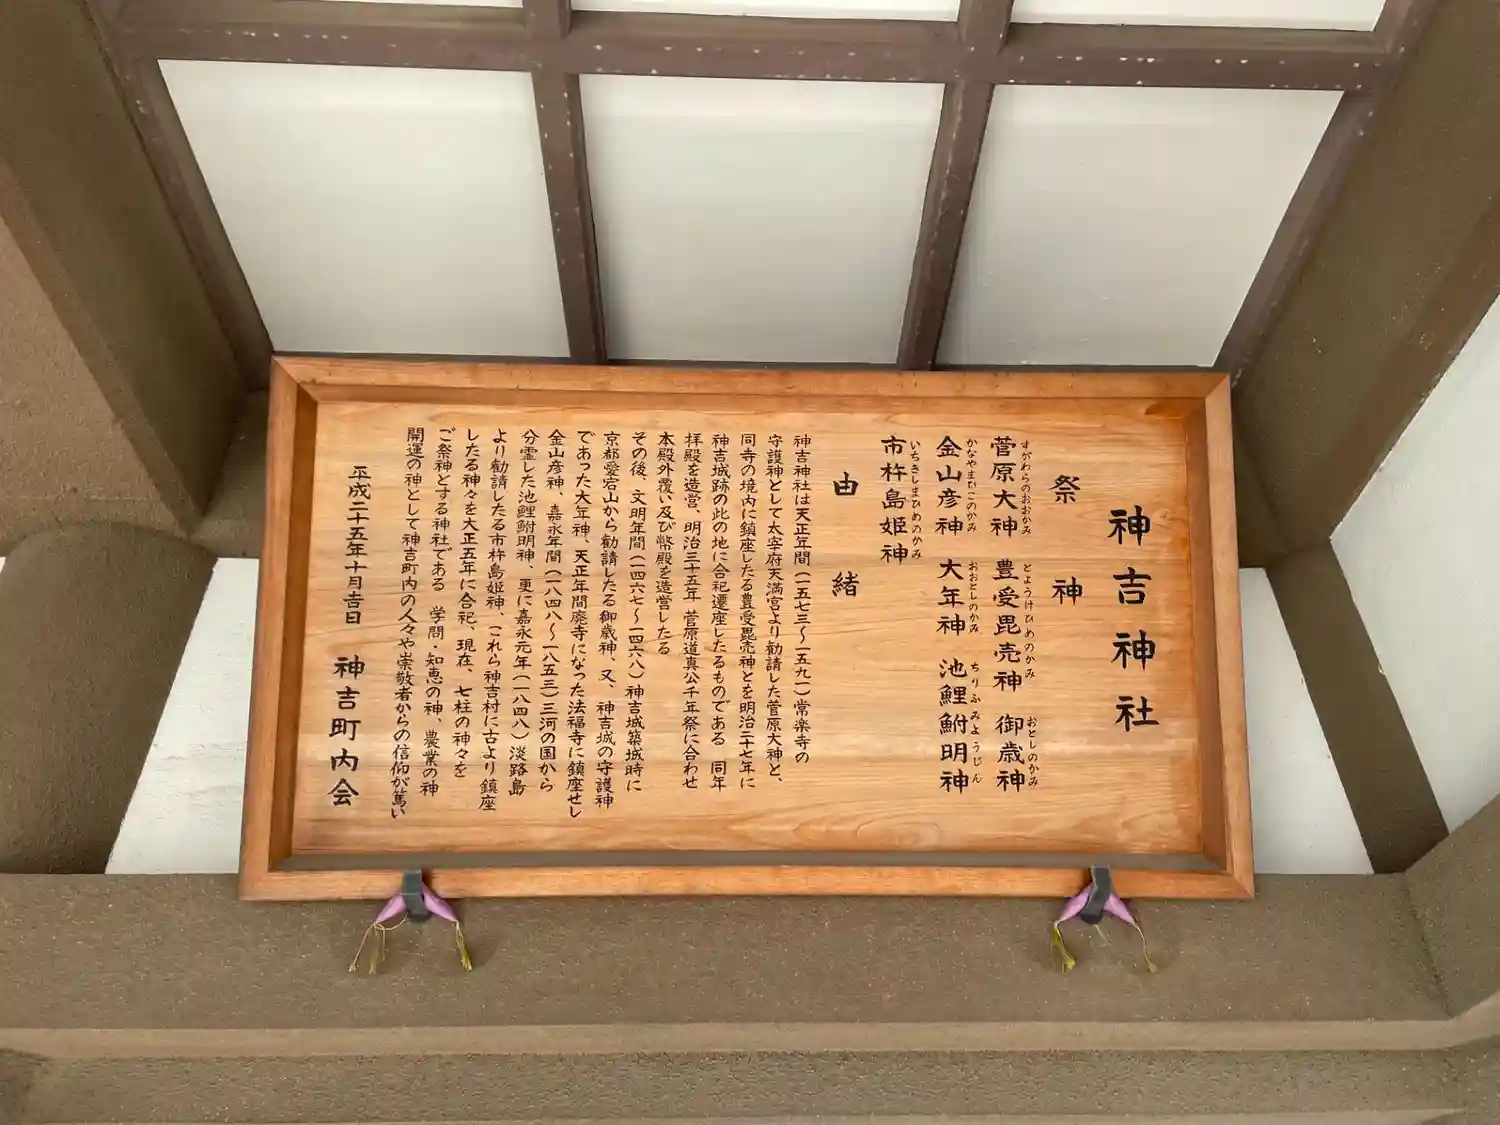 神吉神社
祭神
菅原大神 豊受毘売神 御歳神
すがわらのおおかみ とようけひめのかみ おとしのかみ
金山彦神 大年神 池鯉鮒明神
かなやまひこのかみ おおとしのかみ ちりふみようじん
市杵島姫神
いちきしまひめのかみ
由緒
神吉神社は天正年間(一五七三〜一五九一)常楽寺の
守護神として太宰府天満宮より勧請した菅原大神と、
同寺の境内に鎮座したる豊受毘売神とを明治三十七年に
神吉城跡の此の地に合祀遷座したるものである 同年
拝殿を造営、明治三十五年 菅原道真公千年祭に合わせ
本殿外覆い及び幣殿を造営したる
その後、文明年間(一四六七〜一四六八)神吉城築城時に
京都愛宕山から勧請したる御歳神、又、神吉城の守護神
であった大年神、天正年間廃寺になった法福寺に鎮座せし
金山彦神、嘉永年間(一八四八〜一八五三)三河の国から
分霊した池鯉鮒明神、更に嘉永元年(一八四八)淡路島
より勧請したる市杵島姫神、これら神吉村に古より鎮座
したる神々を大正五年に合祀、現在、七柱の神々を
ご祭神とする神社である 学問・知恵の神、農業の神
開運の神として神吉町内の人々や崇敬者からの信仰が篤い
平成二十五年十月吉日 神吉町内会